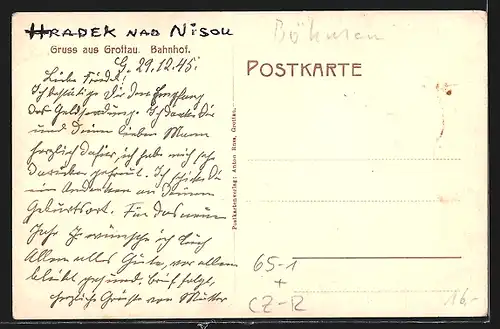 HRADEK NAD NISOU
Gruss aus Grottau. Bahnhof.
Böhmen
G. 29.12.45.
POSTKARTE
Liebe Friedel!
Ich bestätige Dir den Empfang
der Geldsendung. Ich danke Dir
und Deinem lieben Mann
herzlich dafür, ich habe mich sehr
darüber gefreut. Ich schicke Dir
ein Andenken an Deinen
Geburtsort. Für das neue
Jahr wünsche ich Euch
Allen alles Gute, vor allem
bleibt gesund. Brief folgt.
herzliche Grüße von Mutter
Postkartenverlag: Anton Rom, Grottau.
65-1
+
CZ-R
16,-